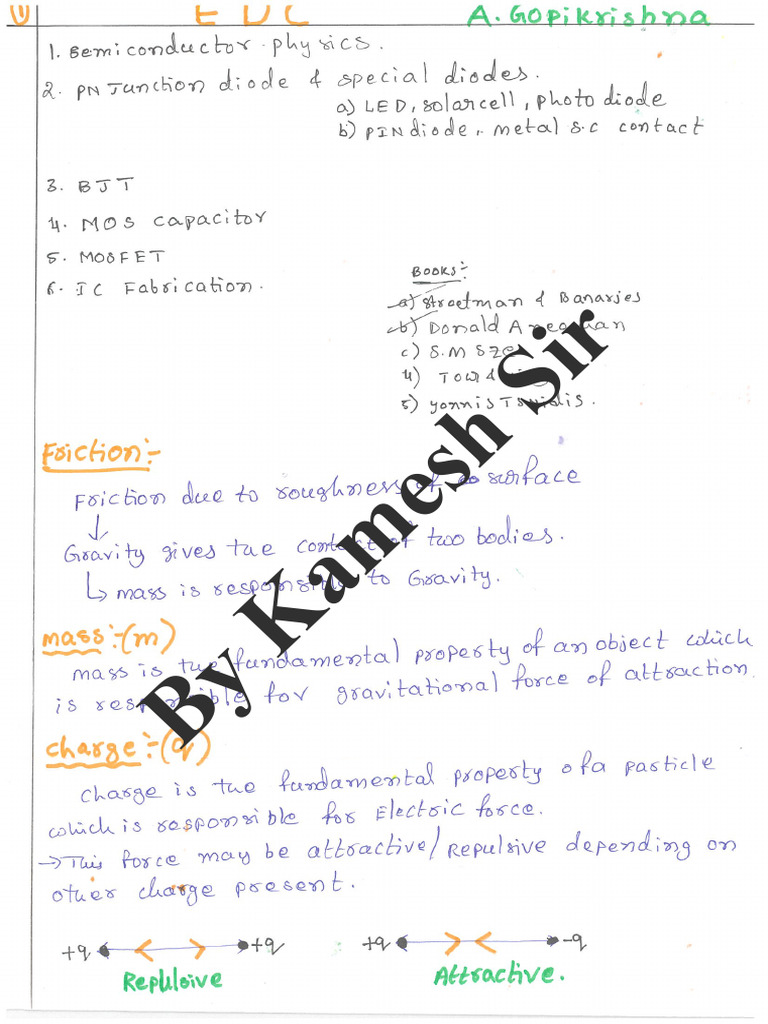 (1) EDC A. Gopikrishna
1. Semiconductor physics.
2. PN Junction diode & special diodes.
a) LED, solarcell, photodiode
b) PIN diode, metal s.c contact
3. BJT
4. MOS capacitor
5. MOSFET
6. IC Fabrication.
BOOKS:-
a) Streetman & Banarjes
b) Donald A
c) S.M Sze
4)
5) yonnis
Friction:-
Friction due to roughness of surface
Gravity gives the contact of two bodies.
mass is responsible to Gravity.
mass:-(m)
mass is the fundamental property of an object which
is responsible for gravitational force of attraction.
charge:-(q)
charge is the fundamental property of a particle
which is responsible for Electric force.
→ This force may be attractive/Repulsive depending on
other charge present.
+q +q +q -q
Repulsive Attractive.
By Kamesh Sir